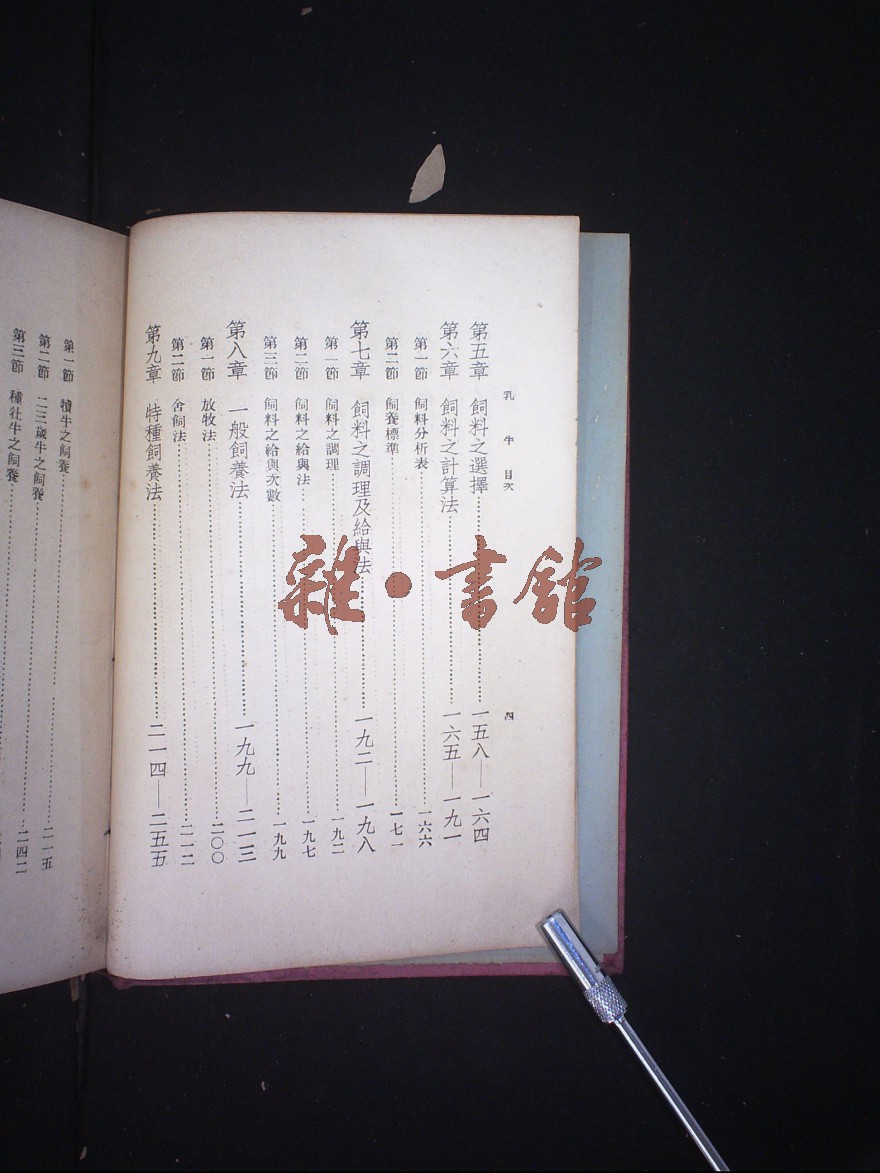 乳牛目次
四
第五章 飼料之選擇……一五八—一六四
第六章 飼料之計算法……一六五—一九一
第一節 飼料分析表……一六六
第二節 飼養標準……一七一
第七章 飼料之調理及給與法……一九二—一九八
第一節 飼料之調理……一九二
第二節 飼料之給與法……一九七
第三節 飼料之給與次數……一九九
第八章 一般飼養法……一九九—二一三
第一節 放牧法……二〇〇
第二節 舍飼法……二一二
第九章 特種飼養法……二一四—二五五
第一節 犢牛之飼養……二一五
第二節 二三歲牛之飼養……二四二
第三節 種牡牛之飼養……
雜·書館